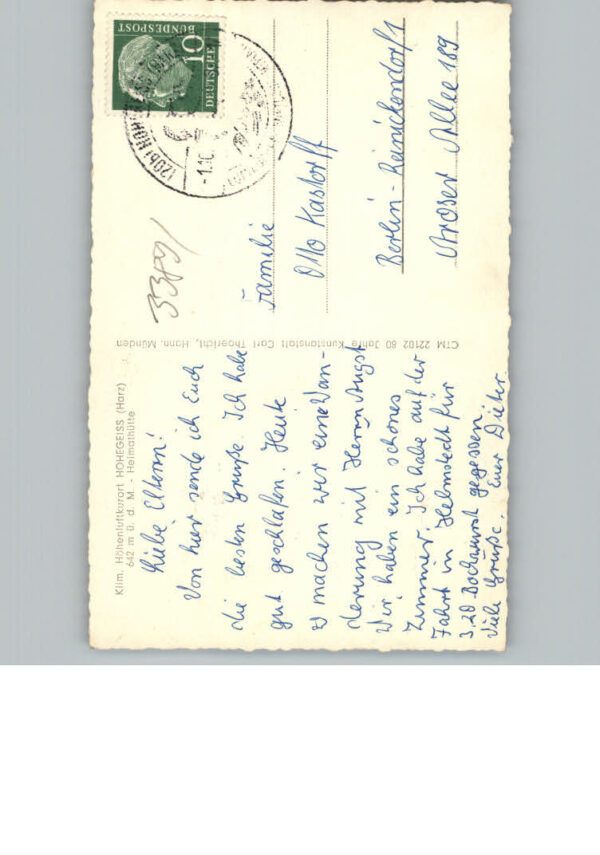 Klim. Höhenluftkurort HOHEGEISS (Harz)
642 m ü. d. M. - Heimathütte
Liebe Eltern!
Von hier sende ich Euch
die besten Grüße. Ich habe
gut geschlafen. Heute
machen wir eine Wan-
derung mit Herrn Augst
Wir haben ein schönes
Zimmer. Ich habe auf der
Fahrt in Helmstedt für
3,20 Bockwurst gegessen.
Viele Grüße. Euer Dieter.
CTM 22102 60 Jahre Kunstanstalt Carl Thoericht, Hann. Münden
DEUTSCHE
BUNDESPOST
10
(20b) HOHEGEISS
-1.10
3389/
Familie
Otto Kastorff
Berlin-Reinickendorf 1
Aroser Allee 189